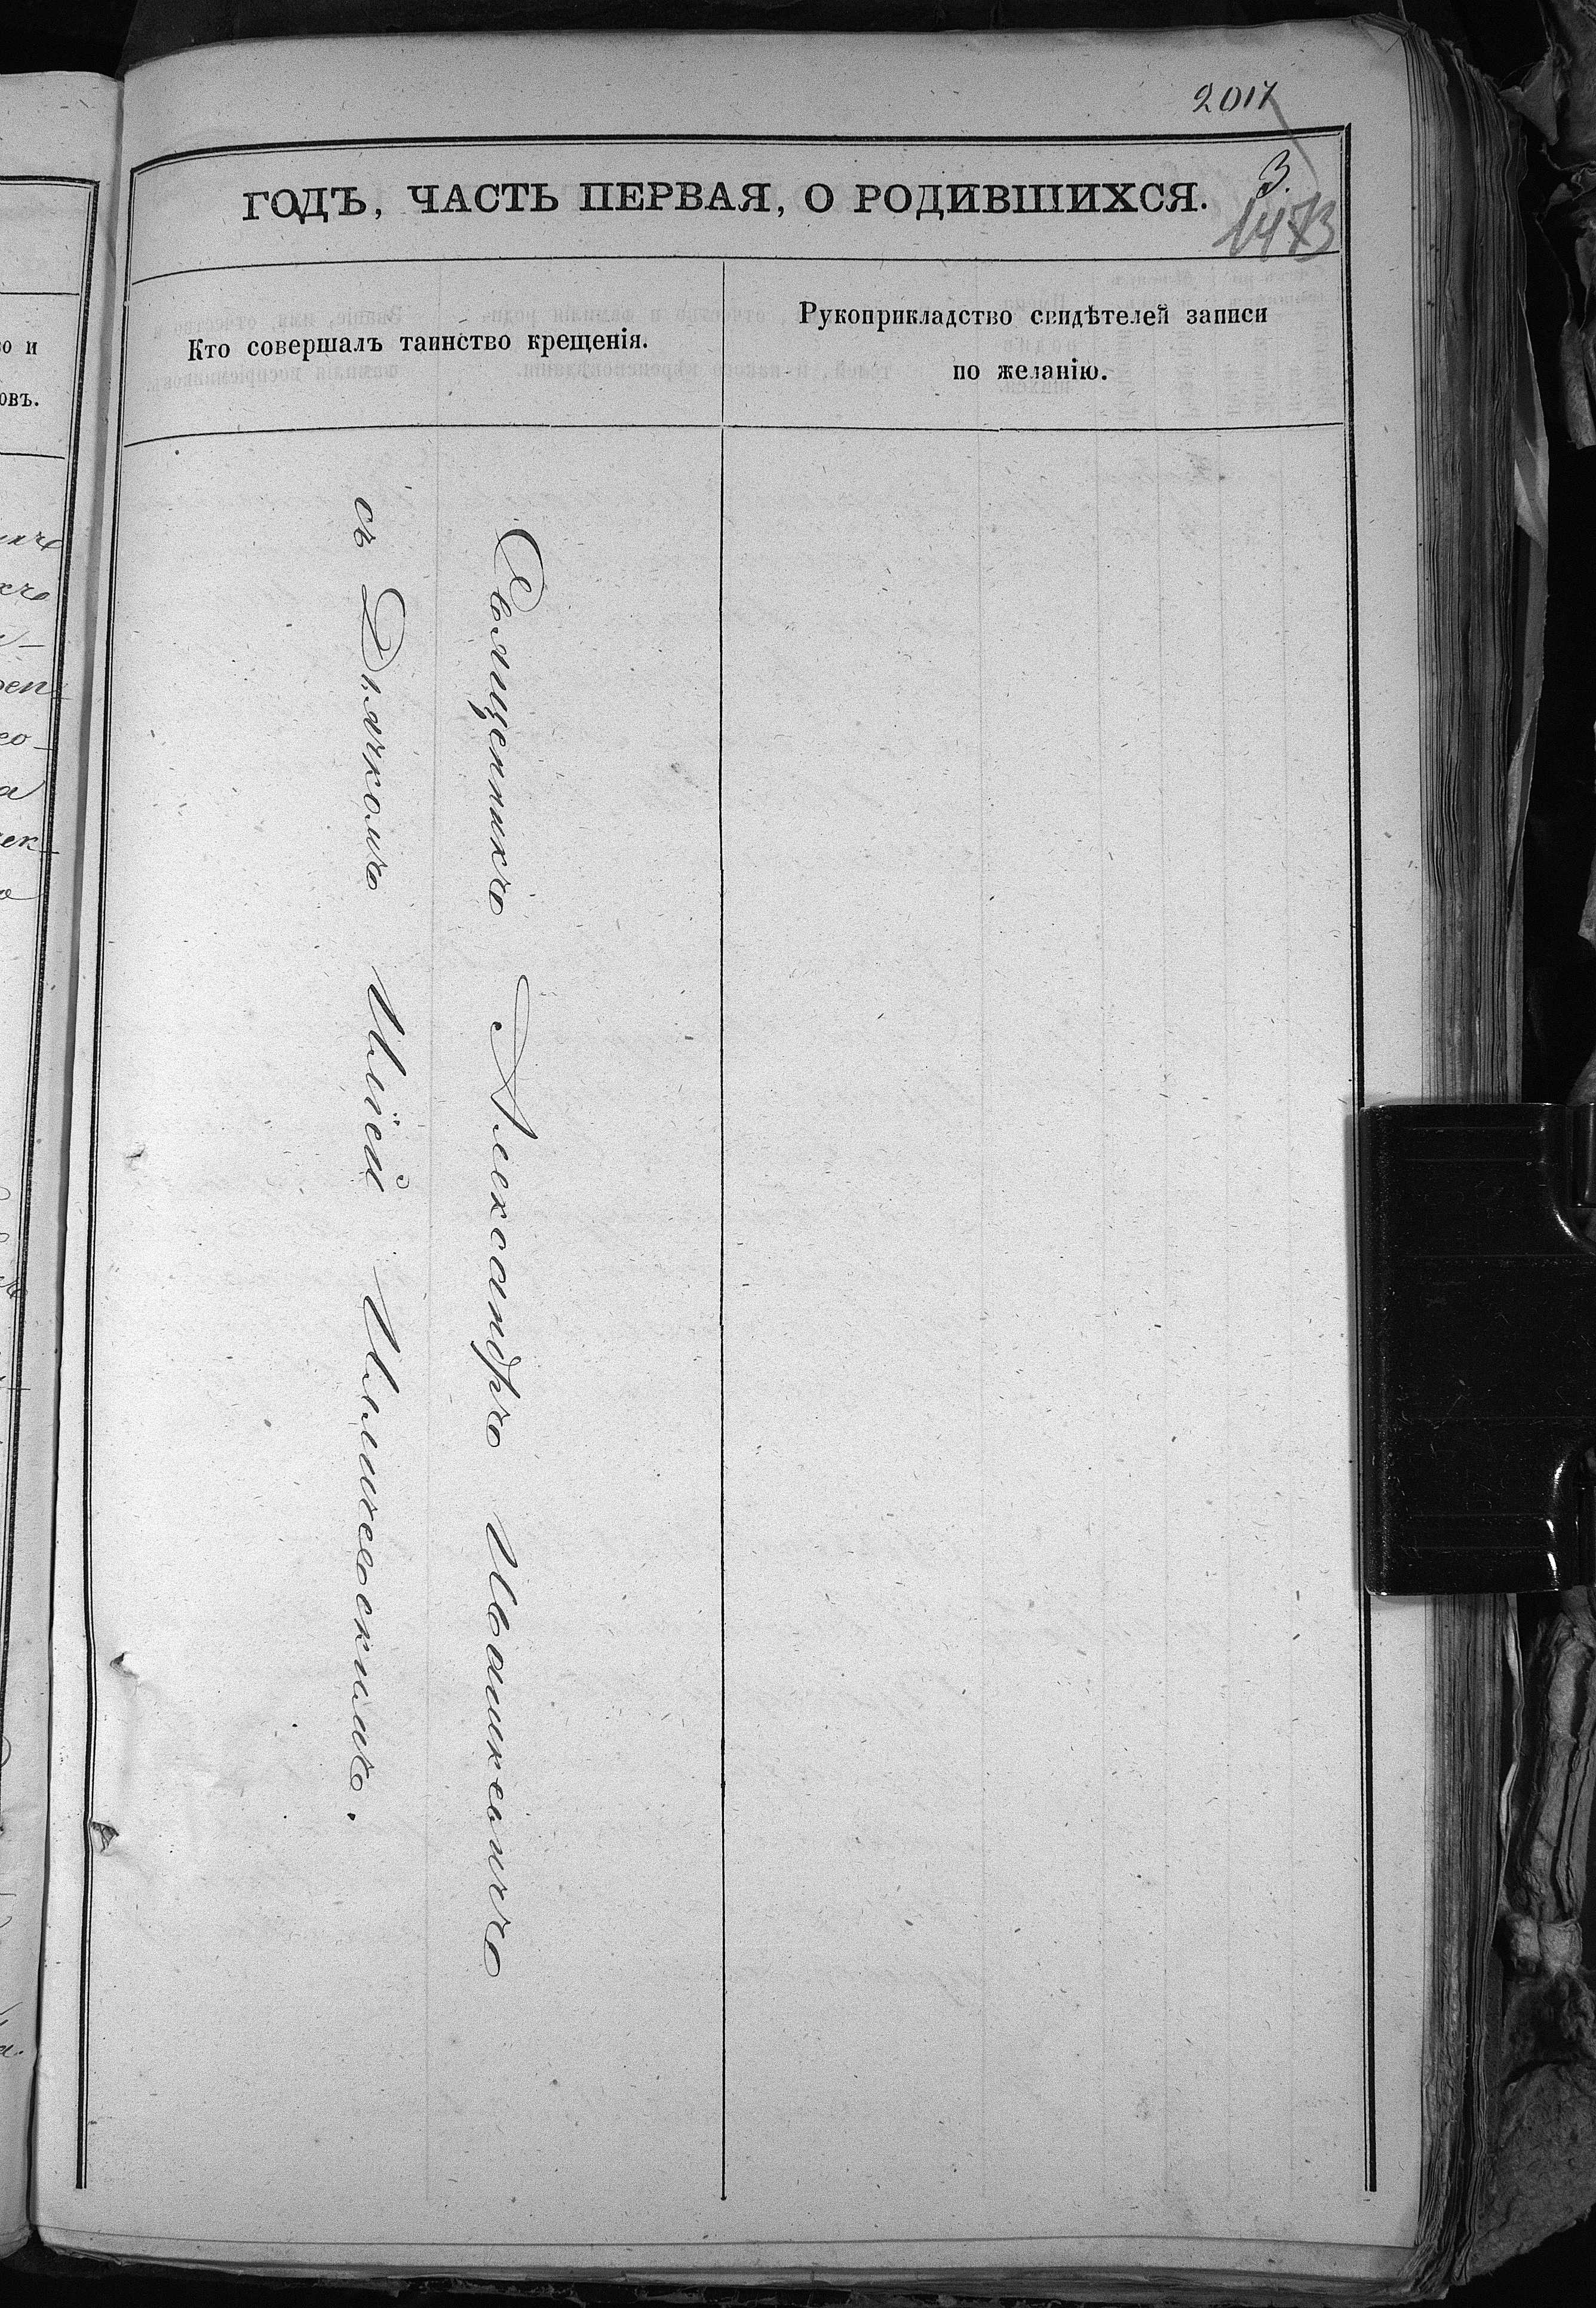 2017
ГОДЪ, ЧАСТЬ ПЕРВАЯ, О РОДИВШИХСЯ.
3.
1473
Кто совершалъ таинство крещенія.
Рукоприкладство свидѣтелей записи
по желанію.
Священникъ Александръ Ивашкеличъ
съ Дьячкомъ Иліей
о и
овъ.